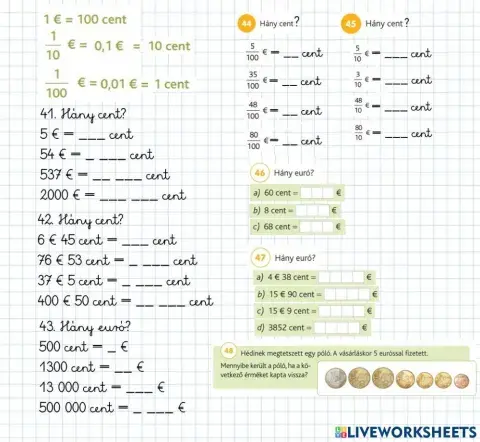 1 € = 100 cent
1/10 € = 0,1 € = 10 cent
1/100 € = 0,01 € = 1 cent
41. Hány cent?
5 € = ___ cent
54 € = _ ___ cent
537 € = __ ___ cent
2000 € = ___ ___ cent
42. Hány cent?
6 € 45 cent = ___ cent
76 € 53 cent = _ ___ cent
37 € 5 cent = _ ___ cent
400 € 50 cent = __ ___ cent
43. Hány euró?
500 cent = _ €
1300 cent = __ €
13 000 cent = ___ €
500 000 cent = _ ___ €
44 Hány cent ?
5/100 € = __ cent
35/100 € = ___ cent
48/100 € = ___ cent
80/100 € = ___ cent
45 Hány cent ?
5/10 € = ___ cent
3/10 € = ___ cent
48/10 € = ___ cent
80/10 € = ___ cent
46 Hány euró?
a) 60 cent = €
b) 8 cent = €
c) 68 cent = €
47 Hány euró?
a) 4 € 38 cent = €
b) 15 € 90 cent = €
c) 15 € 9 cent = €
d) 3852 cent = €
48 Hédinek megtetszett egy póló. A vásárláskor 5 euróssal fizetett.
Mennyibe került a póló, ha a kö-
vetkező érméket kapta vissza?
LIVEWORKSHEETS